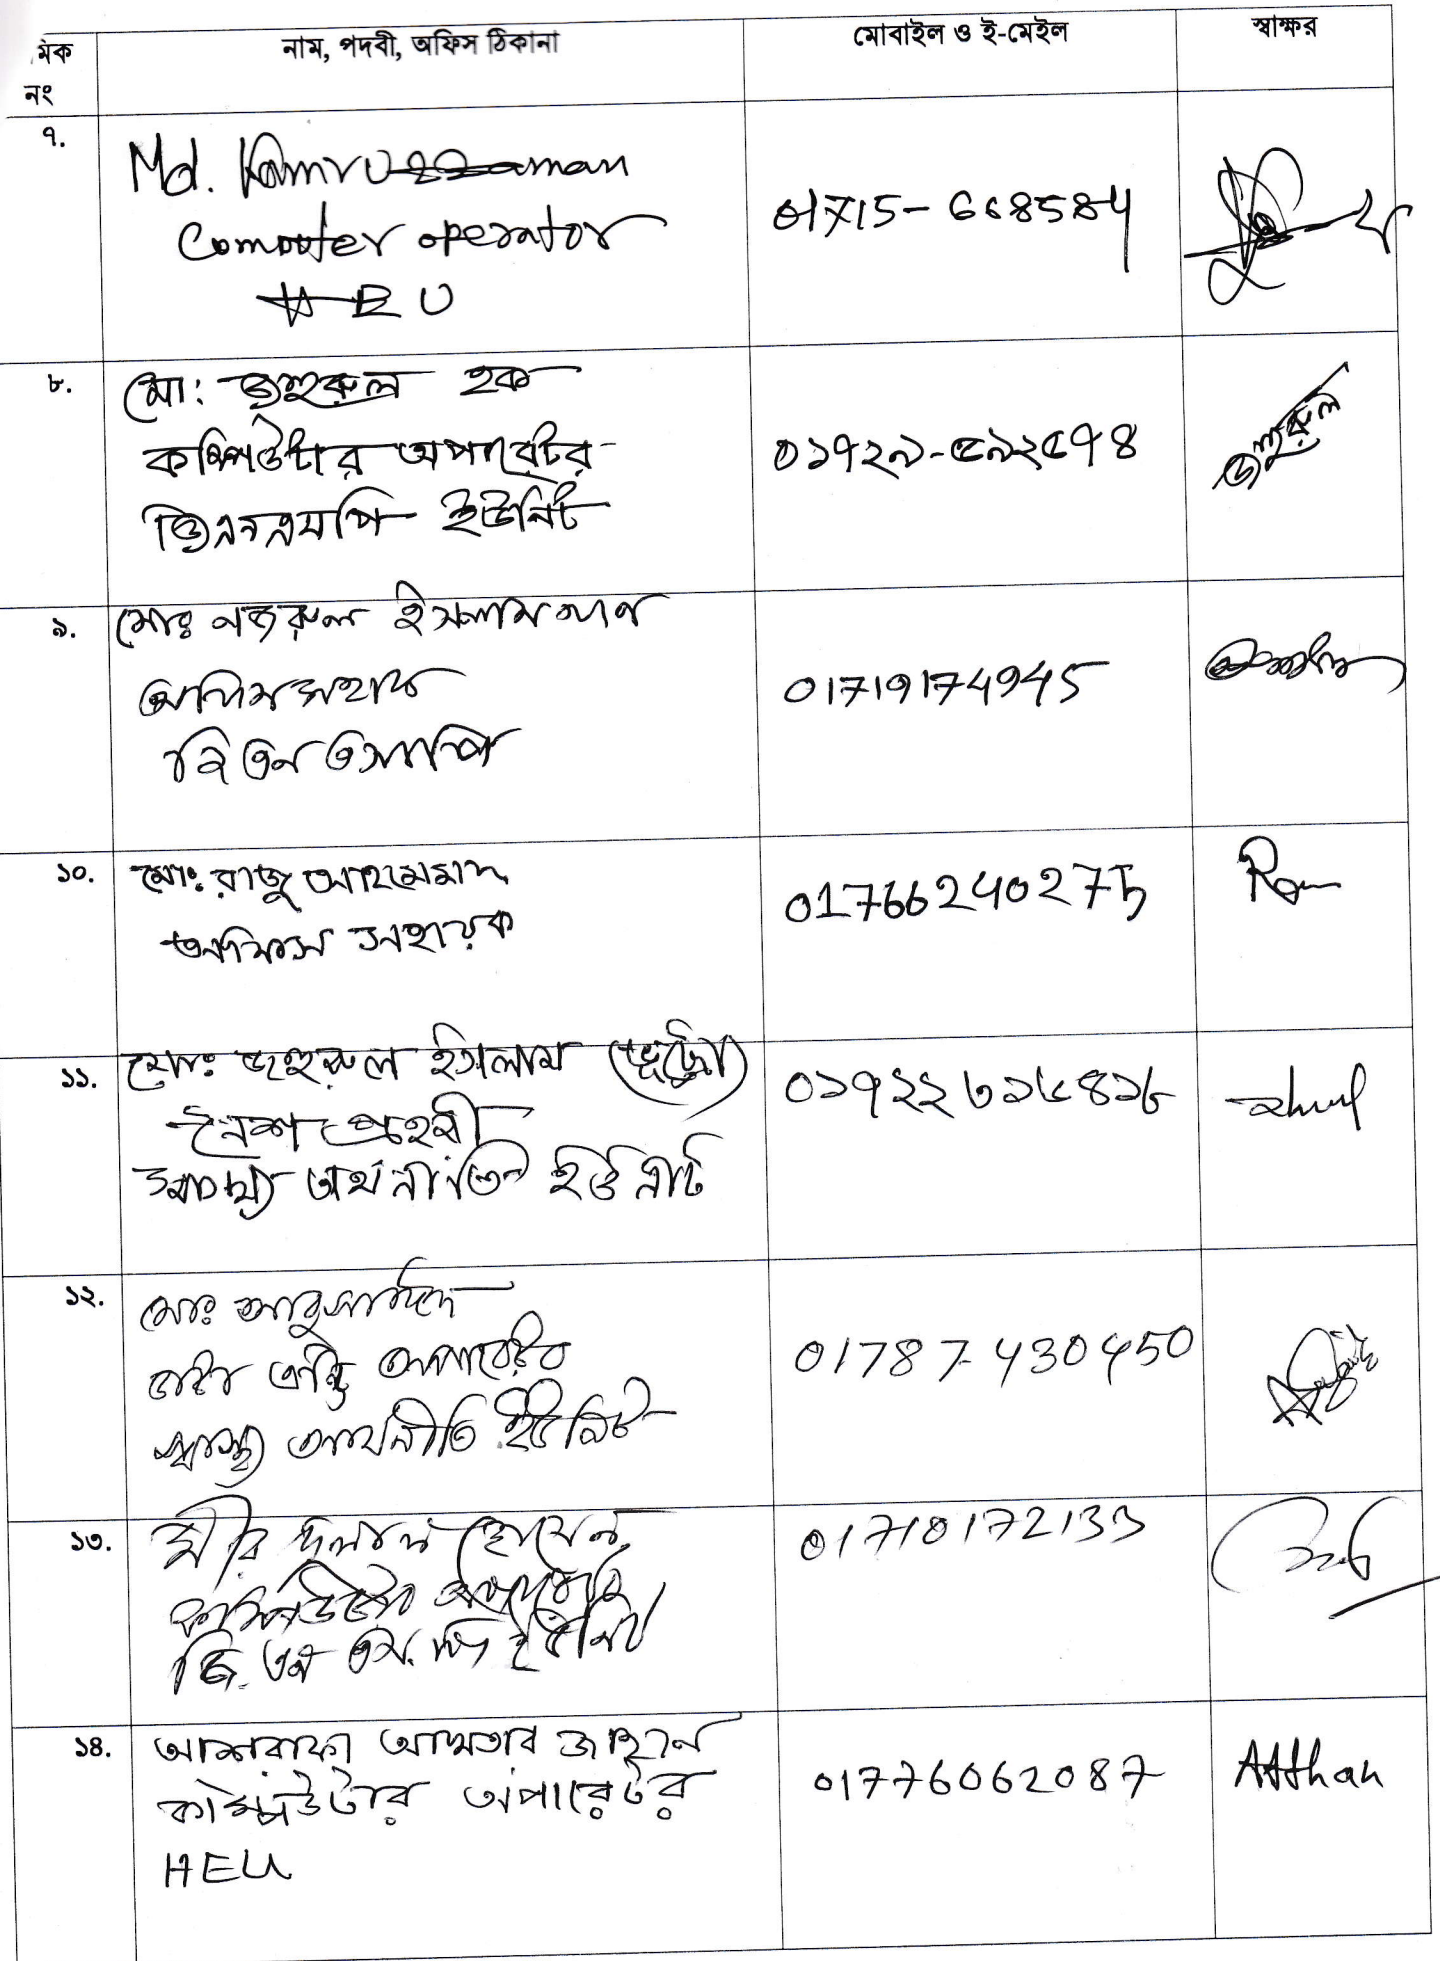 মিক নাম, পদবী, অফিস ঠিকানা মোবাইল ও ই-মেইল স্বাক্ষর
নং
৭.
Md. Kamruzzaman
Computer operator
HEU
01715-668584
৮.
মো: জহুরুল হক
কম্পিউটার অপারেটর
জিএনএসপি ইউনিট
০১৭২৯-৫৯২৫৭৪
জহুরুল
৯.
মোঃ নজরুল ইসলাম খান
01719174945
১০.
মোঃ রাজু আহমেমদ
অফিস সহায়ক
01766240275
১১.
মোঃ জহুরুল ইসলাম
নৈশ প্রহরী
অর্থনীতি ইউনীট
০১৭২২৬১৫৪১৮
১২.
মোঃ আবু সাঈদ
ডাটা এন্ট্রি অপারেটর
স্বাস্থ্য অর্থনীতি ইউনিট
01787-430450
১৩.
মীর হোসেন
কম্পিউটার অপারেটর
01710172133
১৪.
আশরাফা আখতার জাহান
কম্পিউটার অপারেটর
HEU
01776062087